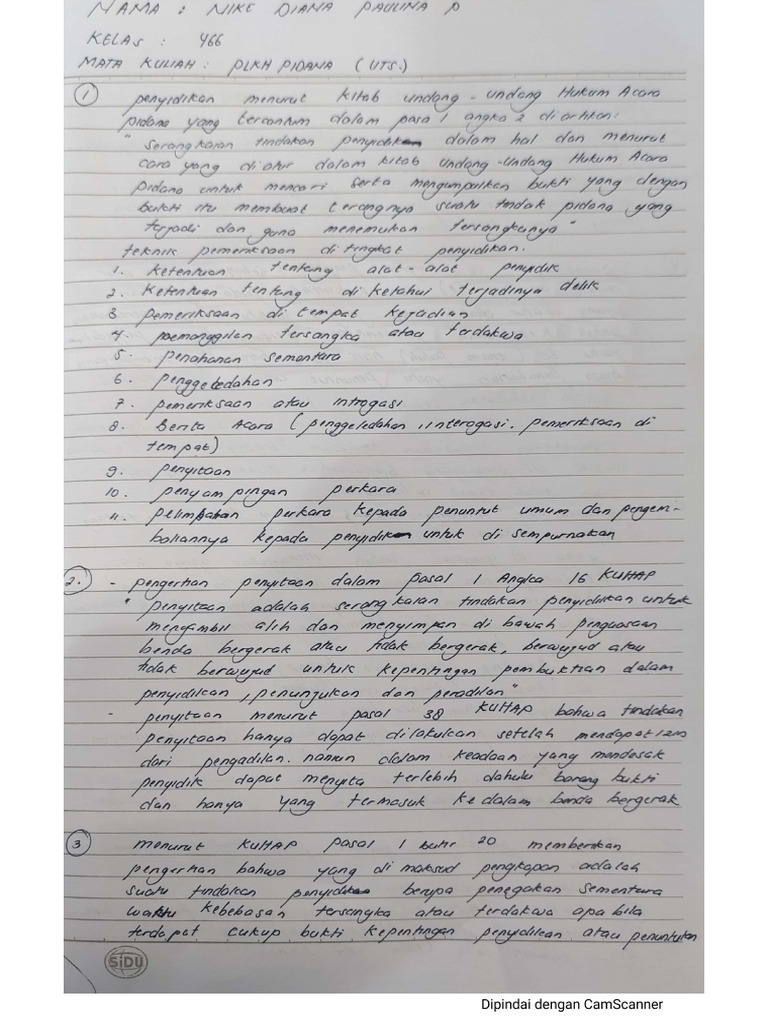 NAMA : NIKE DIANA PAULINA P
KELAS : 466
MATA KULIAH : PLKH PIDANA (UTS.)
1 penyidikan menurut kitab undang-undang Hukum Acara
pidana yang tercantum dalam pasa 1 angka 2 diartikan:
"serangkaian tindakan penyidikan dalam hal dan menurut
cara yang diatur dalam kitab undang-undang Hukum Acara
pidana untuk mencari serta mengumpulkan bukti yang dengan
bukti itu membuat terangnya suatu tindak pidana yang
terjadi dan guna menemukan tersangkanya"
teknik pemeriksaan di tingkat penyidikan.
1. Ketentuan tentang alat-alat penyidik
2. Ketentuan tentang di ketahui terjadinya delik
3 pemeriksaan di tempat kejadian
4. poemanggilan tersangka atau terdakwa
5. penahanan sementara
6. penggeledahan
7. pemeriksaan atau introgasi
8. Berita Acara (penggeledahan, interogasi. pemeriksaan di
tempat)
9. penyitaan
10. penyampingan perkara
11. pelimpahan perkara kepada penuntut umum dan pengem-
baliannya kepada penyidik untuk di sempurnakan
2. - pengertian penyitaan dalam pasal 1 Angka 16 KUHAP
"penyitaan adalah serangkaian tindakan penyidikan untuk
mengambil alih dan menyimpan di bawah penguasaan
benda bergerak atau tidak bergerak, berwujud atau
tidak berwujud untuk kepentingan pembuktian dalam
penyidikan, penunjukan dan peradilan"
- penyitaan menurut pasal 38 KUHAP bahwa tindakan
penyitaan hanya dapat dilakukan setelah mendapat izin
dari pengadilan. namun dalam keadaan yang mendesak
penyidik dapat menyita terlebih dahulu barang bukti
dan hanya yang termasuk ke dalam benda bergerak
3 menurut KUHAP pasal 1 butir 20 memberikan
pengertian bahwa yang di maksud pengkapan adalah
suatu tindakan penyidikan berupa penegakan sementara
waktu kebebasan tersangka atau terdakwa apa bila
terdapat cukup bukti kepentingan penyidikan atau penuntutan
SiDU
Dipindai dengan CamScanner